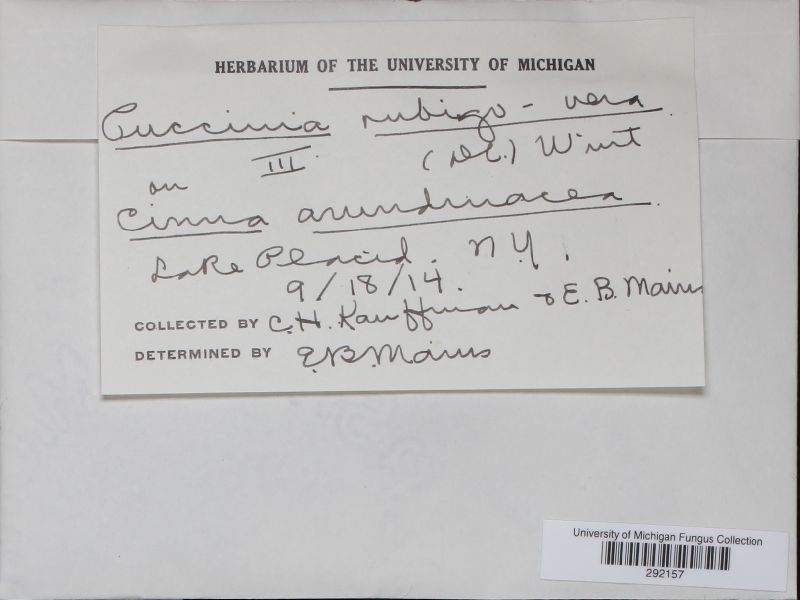 HERBARIUM OF THE UNIVERSITY OF MICHIGAN
Puccinia rubigo-vera
III. (DC.) Wint
on
Cinna arundinacea.
Lake Placid. N.Y.
9/18/14.
COLLECTED BY C.H. Kauffman & E.B. Mains
DETERMINED BY E.B. Mains
University of Michigan Fungus Collection
292157